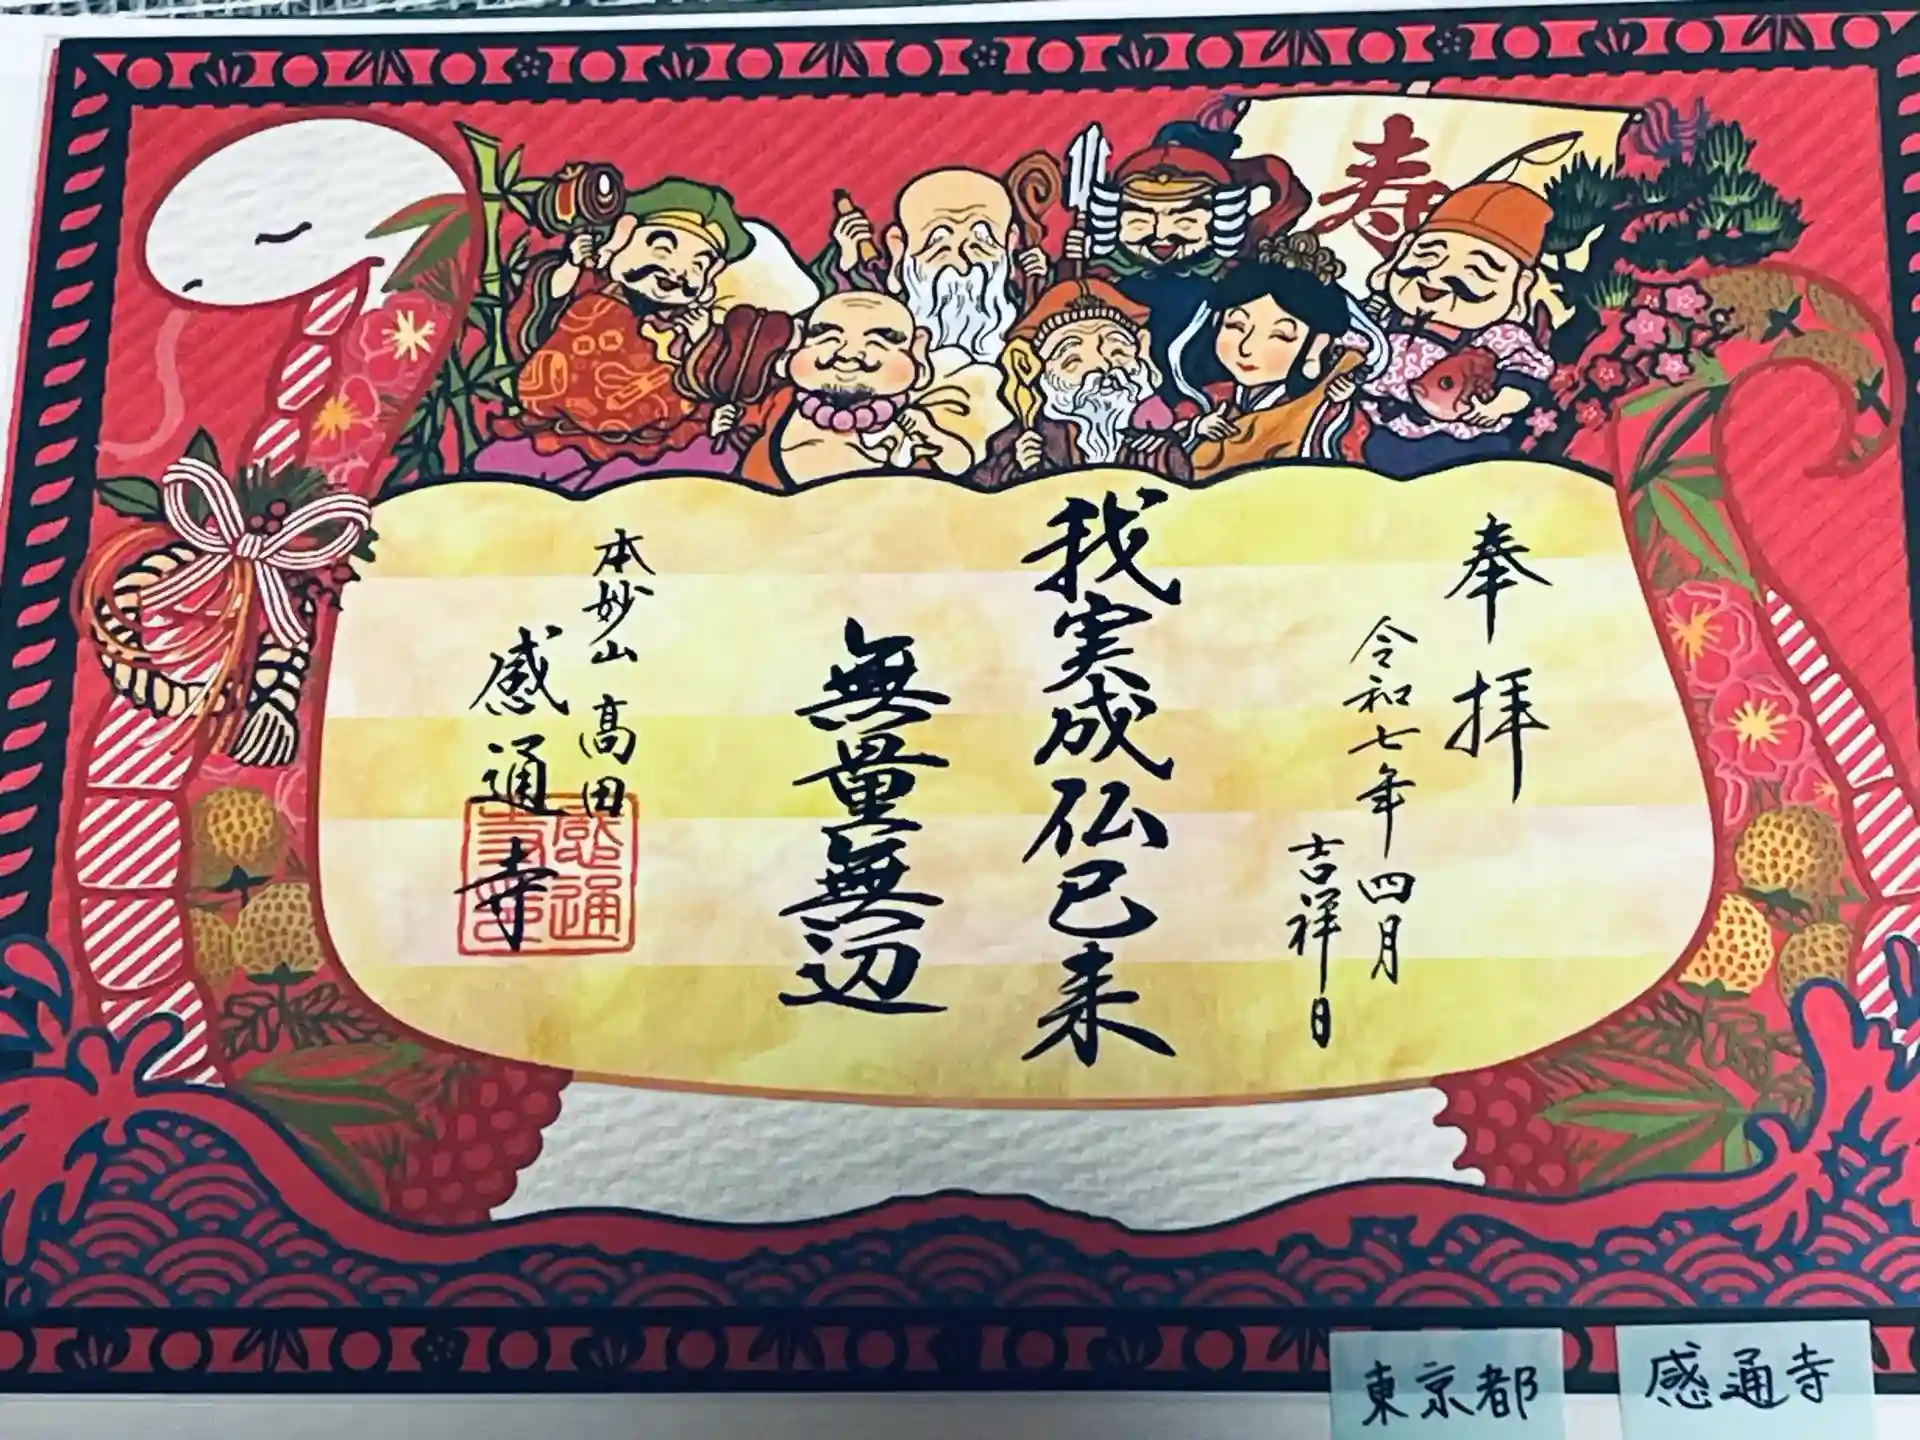 寿
奉拝
令和七年四月
吉祥日
我実成仏已来
無量無辺
本妙山 高田
感通寺
感通
寺印
東京都
感通寺